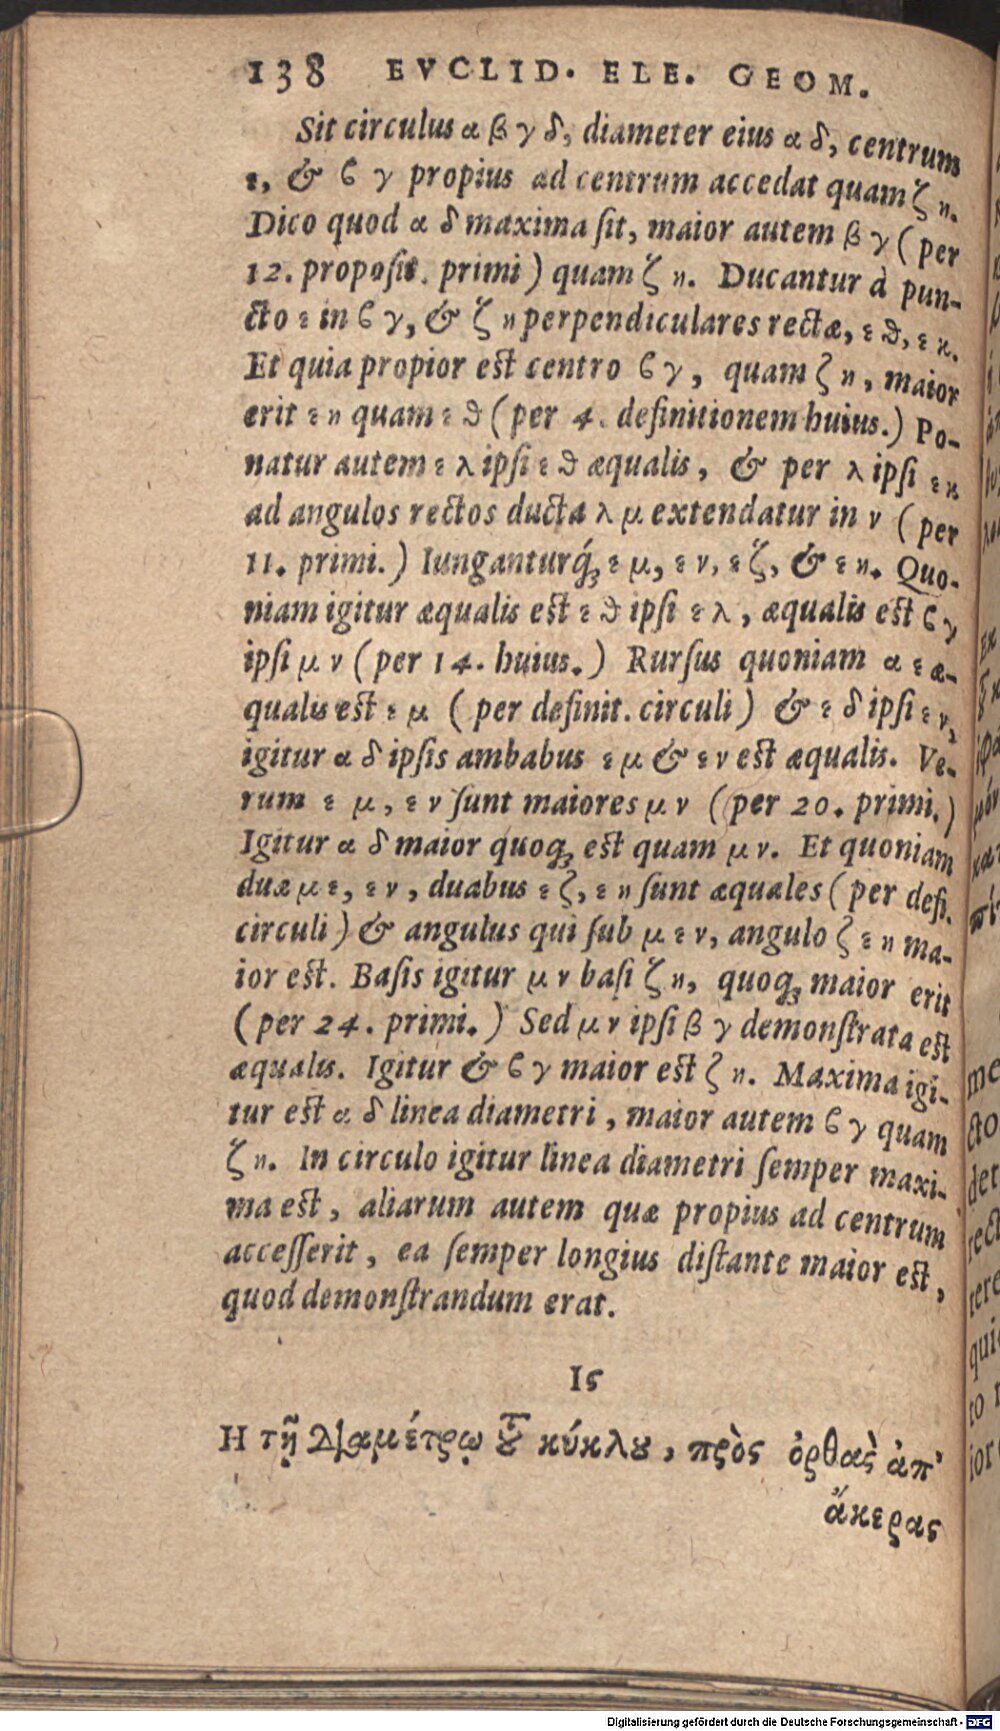 138 EVCLID. ELE. GEOM.
Sit circulus α β γ δ, diameter eius α δ, centrum
ε, & ϐ γ propius ad centrum accedat quam ζ η.
Dico quod α δ maxima ſit, maior autem β γ (per
12. propoſit. primi) quam ζ η. Ducantur à pun-
cto ε in ϐ γ, & ζ η perpendiculares rectæ, ε θ, ε κ.
Et quia propior est centro ϐ γ, quam ζ η, maior
erit ε η quam ε θ (per 4. definitionem huius.) Po-
natur autem ε λ ipſi ε θ æqualis, & per λ ipſi ε κ
ad angulos rectos ducta λ μ extendatur in ν (per
11. primi.) Iunganturq́ꝫ ε μ, ε ν, ε ζ, & ε η. Quo-
niam igitur æqualis est ε θ ipſi ε λ, æqualis est ϐ γ
ipſi μ ν (per 14. huius.) Rurſus quoniam α ε æ-
qualis est ε μ (per definit. circuli) & ε δ ipſi ε ν,
igitur α δ ipſis ambabus ε μ & ε ν est æqualis. Ve-
rum ε μ, ε ν ſunt maiores μ ν (per 20. primi.)
Igitur α δ maior quoqꝫ est quam μ ν. Et quoniam
duæ μ ε, ε ν, duabus ε ζ, ε η ſunt æquales (per defi.
circuli) & angulus qui ſub μ ε ν, angulo ζ ε η ma-
ior est. Baſis igitur μ ν baſi ζ η, quoqꝫ maior erit
(per 24. primi.) Sed μ ν ipſi β γ demonſtrata est
æqualis. Igitur & ϐ γ maior est ζ η. Maxima igi-
tur est α δ linea diametri, maior autem ϐ γ quam
ζ η. In circulo igitur linea diametri ſemper maxi-
ma est, aliarum autem quæ propius ad centrum
acceſſerit, ea ſemper longius diſtante maior est,
quod demonſtrandum erat.
Ις
Η τῇ διαμέτρῳ τȣ͂ κύκλȣ, πρὸς ὀρθὰς ἀπ'
ἄκερας
Digitalisierung gefördert durch die Deutsche Forschungsgemeinschaft - DFG